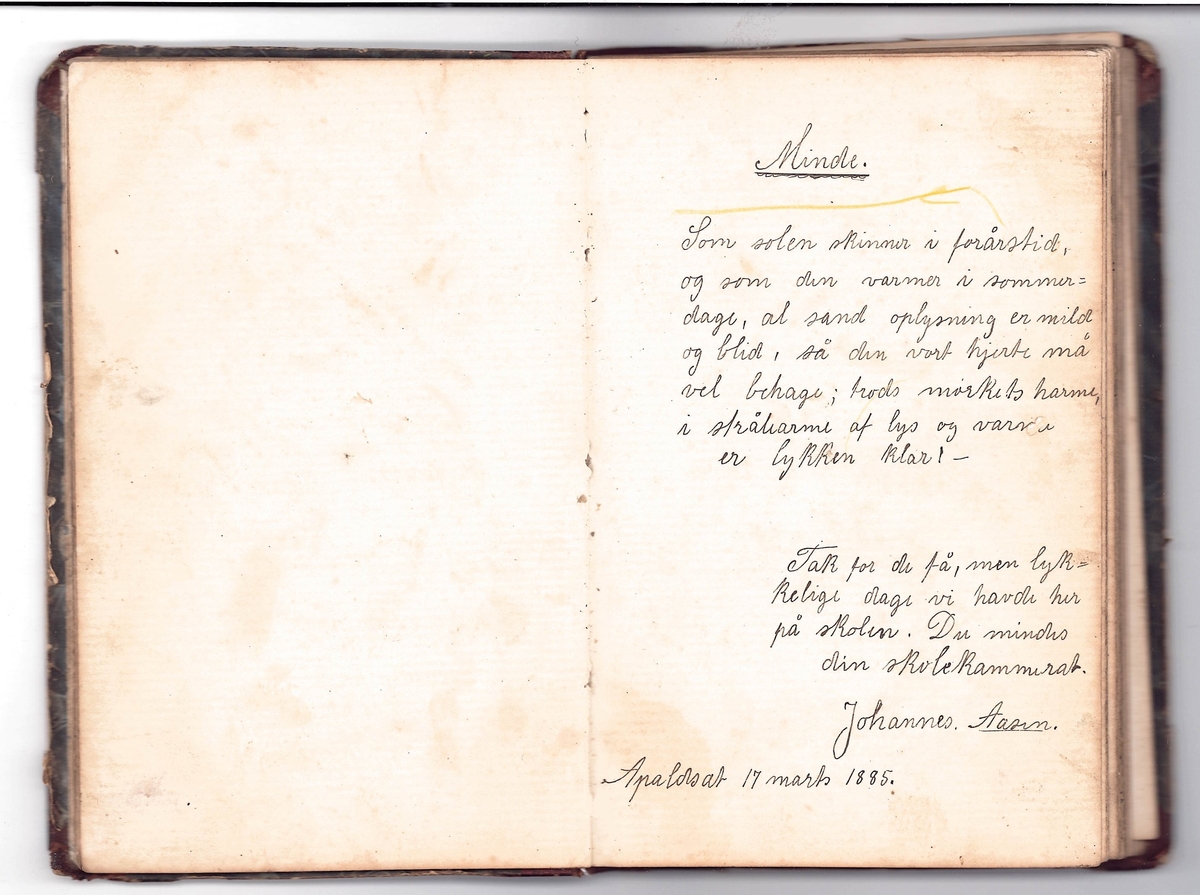 Minde.
Som solen skinner i forårstid,
og som den varmer i sommer=
dage, al sand oplysning er mild
og blid, så den vort hjerte må
vel behage; trods mørkets harme,
i stråliarme af lys og varme
er lykken klar! —
Tak for de få, men lyk=
kelige dage vi havde her
på skolen. Du mindes
din skolekammerat.
Johannes. Aasen.
Apaldsat 17 marts 1885.